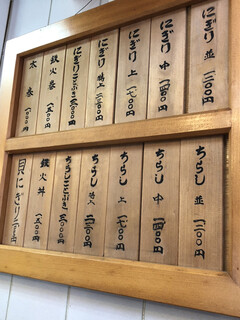 にぎり 並 一二〇〇円
にぎり 中 一四〇〇円
にぎり 上 一七〇〇円
にぎり 特上 二二〇〇円
にぎりことぶき 三〇〇〇円
鉄火巻 一五〇〇円
太巻 一二〇〇円
ちらし 並 一二〇〇円
ちらし 中 一四〇〇円
ちらし 上 一七〇〇円
ちらし 特上 二二〇〇円
ちらしことぶき 三〇〇〇円
鉄火丼 一五〇〇円
貝にぎり